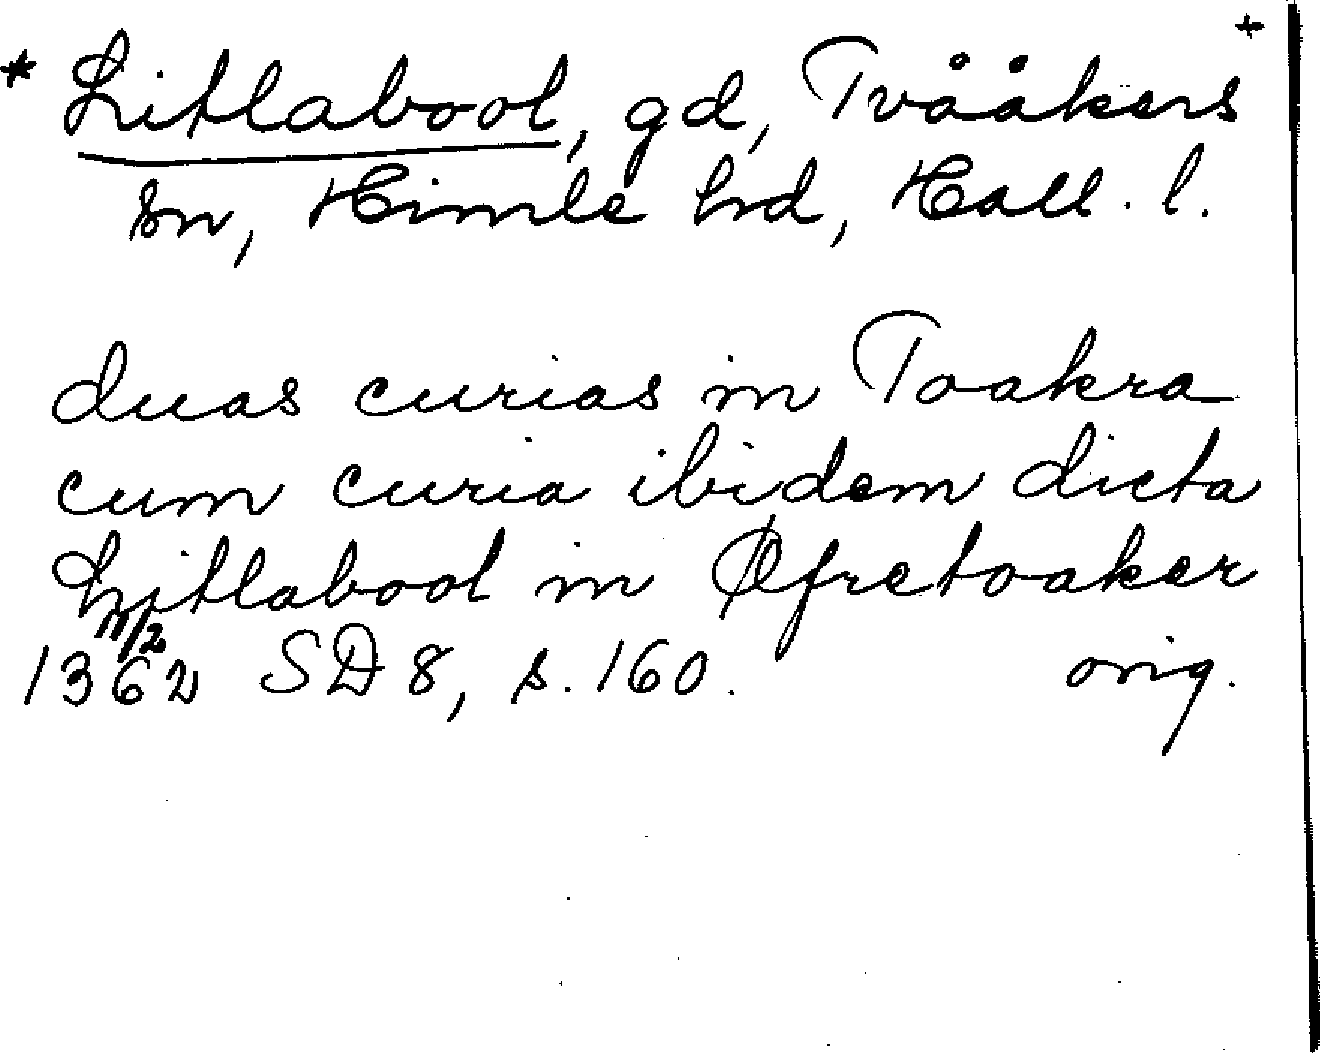 * Litlaboot, gd, Tvååkers +
sn, Himle hd, Hall. l.
duas curias in Toakra
cum curia ibidem dicta
Litlaboot in Øfretoaker
1362 SD 8, s. 160. orig.